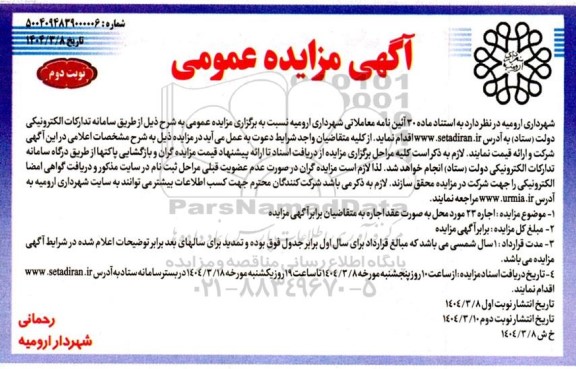 شماره : ۵۰۰۴۰۹۴۸۳۹۰۰۰۰۰۶
تاریخ ۱۴۰۴/۳/۸
آگهی مزایده عمومی
نوبت دوم
شهرداری ارومیه در نظر دارد به استناد ماده ۳۰ آئین نامه معاملاتی شهرداری ارومیه نسبت به برگزاری مزایده عمومی به شرح ذیل از طریق سامانه تدارکات الکترونیکی
دولت (ستاد) به آدرس www.setadiran.ir اقدام نماید. از کلیه متقاضیان واجد شرایط دعوت به عمل می آید در مزایده ذیل به شرح مشخصات اعلامی در این آگهی
شرکت و ارائه قیمت نمایند. لازم به ذکر است کلیه مراحل برگزاری مزایده از دریافت اسناد تا ارائه پیشنهاد قیمت مزایده گران و بازگشایی پاکتها از طریق درگاه سامانه
تدارکات الکترونیکی دولت (ستاد) انجام خواهد شد. لذا لازم است مزایده گران در صورت عدم عضویت قبلی مراحل ثبت نام در سایت مذکور و دریافت گواهی امضا
الکترونیکی را جهت شرکت در مزایده محقق سازند. لازم به ذکر می باشد شرکت کنندگان محترم جهت کسب اطلاعات بیشتر می توانند به سایت شهرداری ارومیه به
آدرس www.urmia.ir مراجعه نمایند.
۱- موضوع مزایده : اجاره ۲۳ مورد محل به صورت عقد اجاره به متقاضیان برابر آگهی مزایده
۲- مبلغ کل مزایده : برابر آگهی مزایده
۳- مدت قرارداد : ۱ سال شمسی می باشد که مبالغ قرارداد برای سال اول برابر جدول فوق بوده و تمدید برای سالهای بعد برابر توضیحات اعلام شده در شرایط آگهی
مزایده می باشد.
۴- تاریخ دریافت اسناد مزایده : از ساعت ۱۰ روز پنجشنبه مورخه ۱۴۰۴/۳/۸ تا ساعت ۱۹ روز یکشنبه مورخه ۱۴۰۴/۳/۱۸ در بستر سامانه ستاد به آدرس www.setadiran.ir
اقدام نمایند.
تاریخ انتشار نوبت اول ۱۴۰۴/۳/۸
تاریخ انتشار نوبت دوم ۱۴۰۴/۳/۱۰
خ ش ۱۴۰۴/۳/۸
رحمانی
شهردار ارومیه
ParsNamadData
پایگاه اطلاع رسانی مناقصه و مزایده
۰۲۱-۸۸۳۴۹۶۷۰-۵